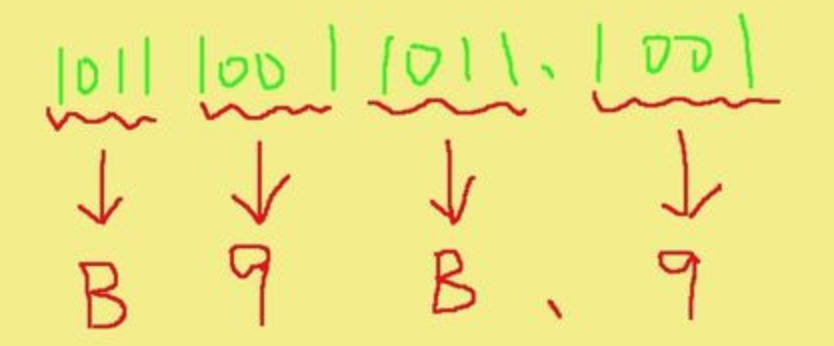 1011 1001 1011.1001
B 9 B.9